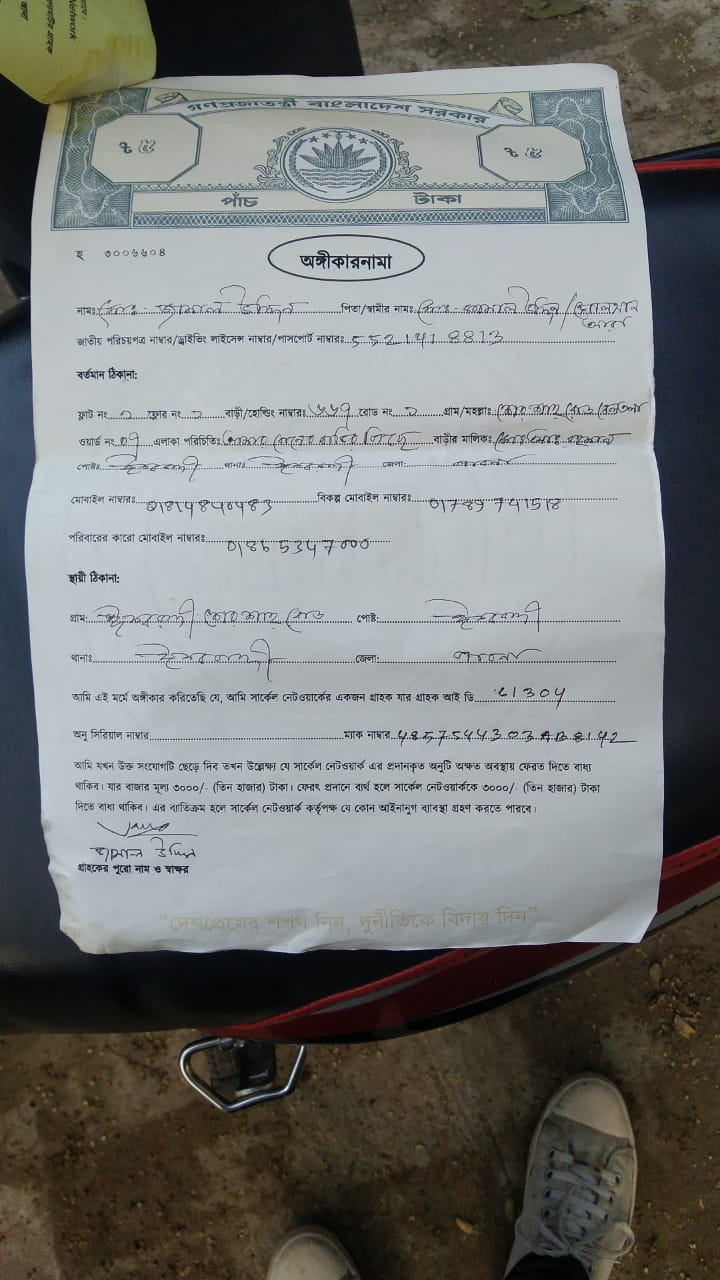 Network
গণপ্রজাতন্ত্রী বাংলাদেশ সরকার
৳ ৫ ৳ ৫
পাঁচ টাকা
হ ৩০০৬৬০৪
অঙ্গীকারনামা
নামঃ মোঃ- জামাল উদ্দিন পিতা/স্বামীর নামঃ মোঃ- উদ্দিন /
আরা
জাতীয় পরিচয়পত্র নাম্বার/ড্রাইভিং লাইসেন্স নাম্বার/পাসপোর্ট নাম্বারঃ 552141 8813
বর্তমান ঠিকানা:
ফ্লাট নং ফ্লোর নং বাড়ী/হোল্ডিং নাম্বারঃ রোড নং গ্রাম/মহল্লাঃ শের শাহ রোড
ওয়ার্ড নং 07 এলাকা পরিচিতিঃ বাড়ির বাড়ীর মালিক:
পোষ্টঃ ঈশ্বরদী থানাঃ ঈশ্বরদী জেলা: পাবনা
মোবাইল নাম্বারঃ বিকল্প মোবাইল নাম্বারঃ
পরিবারের কারো মোবাইল নাম্বারঃ
স্থায়ী ঠিকানা:
গ্রাম: ঈশ্বরদী শের শাহ রোড পোষ্ট: ঈশ্বরদী
থানাঃ ঈশ্বরদী জেলা: পাবনা
আমি এই মর্মে অঙ্গীকার করিতেছি যে, আমি সার্কেল নেটওয়ার্কের একজন গ্রাহক যার গ্রাহক আই ডি 1304
অনু সিরিয়াল নাম্বার ম্যাক নাম্বার 4857544303AB8142
আমি যখন উক্ত সংযোগটি ছেড়ে দিব তখন উল্লেক্ষ্য যে সার্কেল নেটওয়ার্ক এর প্রদানকৃত অনুটি অক্ষত অবস্থায় ফেরত দিতে বাধ্য
থাকিব। যার বাজার মূল্য ৩০০০/- (তিন হাজার) টাকা। ফেরৎ প্রদানে ব্যর্থ হলে সার্কেল নেটওয়ার্ককে ৩০০০/- (তিন হাজার) টাকা
দিতে বাধ্য থাকিব। এর ব্যতিক্রম হলে সার্কেল নেটওয়ার্ক কর্তৃপক্ষ যে কোন আইনানুগ ব্যাবস্থা গ্রহণ করতে পারবে।
জামাল উদ্দিন
গ্রাহকের পুরো নাম ও স্বাক্ষর
“দেশপ্রেমের শপথ নিন, দুর্নীতিকে বিদায় দিন”